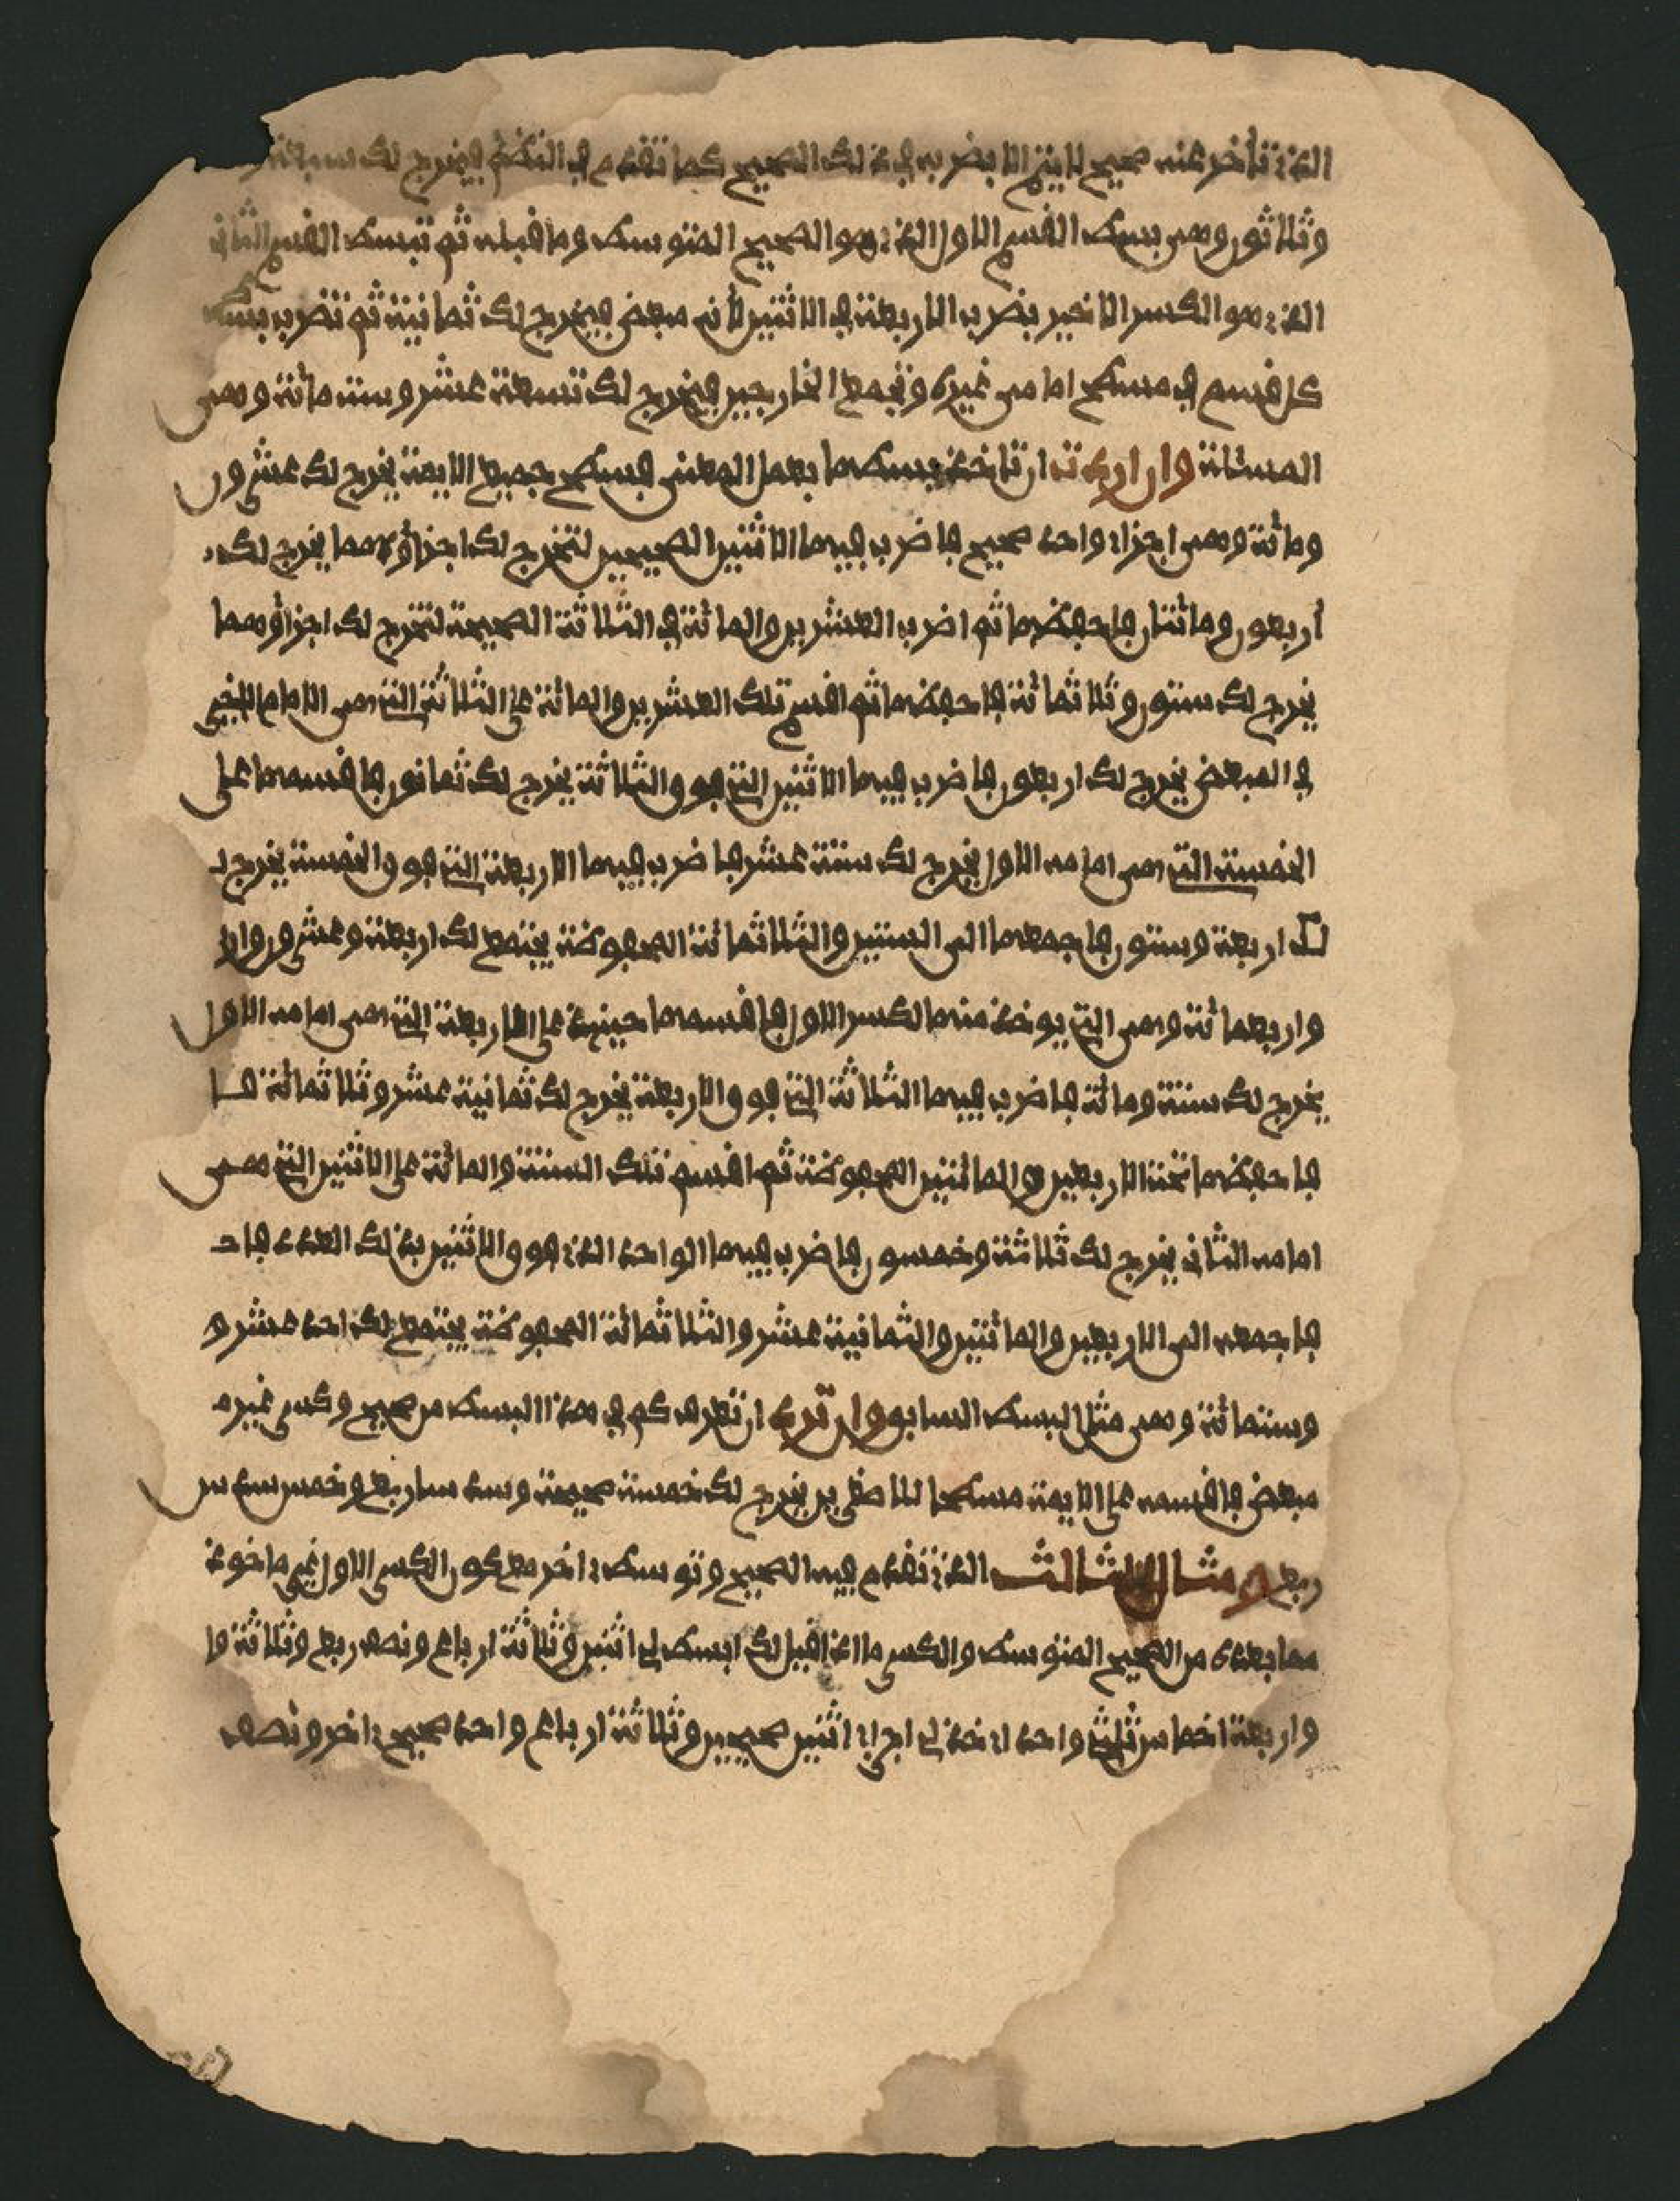 الذي تأخر عنه صحيح لا يتم الا بضربه في ذلك الصحيح كما تقدم في النظم فيخرج لك سبعة و
وثلاثون وهي بسط القسم الاول الذي هو الصحيح المتوسط وما قبله ثم تبسط القسم الثاني
الذي هو الكسر الاخير بضرب الاربعة في الاثنين لأنه مبعض فيخرج لك ثمانية ثم تضرب بسط
كل قسم في مسطح امامي غيره وتجمع الخارجين فيخرج لك تسعة عشر وستمائة وهي
المسئلة وان اردت ان تاخذ بسطها بعمل المعنى فسطح جميع الايمة يخرج لك عشرون
ومائة وهي اجزاء واحد صحيح فاضرب فيها الاثنين الصحيحين لتخرج لك اجزاؤهما يخرج لك
أربعون ومائتان فاحفظها ثم اضرب العشرين والمائة في الثلاثة الصحيحة لتخرج لك اجزاؤها
يخرج لك ستون وثلاثمائة فاحفظها ثم اقسم تلك العشرين والمائة على الثلاثة التي هي الامام الاخير
في المبعض يخرج لك اربعون فاضرب فيها الاثنين التي فوق الثلاثة يخرج لك ثمانون فاقسمها على
الخمسة التي هي امامه الاول يخرج لك ستة عشر فاضرب فيها الاربعة التي فوق الخمسة يخرج لـ
لك اربعة وستون فاجمعها الى الستين والثلاثمائة المحفوظة يجتمع لك اربعة وعشرون وار
واربعمائة وهي التي يوخذ منها الكسر الاول فاقسمها حينئذ على الاربعة التي هي امامه الاول
يخرج لك ستة ومائة فاضرب فيها الثلاثة التي فوق الاربعة يخرج لك ثمانية عشر وثلاثمائة فا
فاحفظها تحت الاربعين والمائتين المحفوظة ثم اقسم تلك الستة والمائة على الاثنين التي هي
امامه الثاني يخرج لك ثلاثة وخمسون فاضرب فيها الواحد الذي فوق الاثنين بذلك العدد فاجـ
فاجمعه الى الاربعين والمائتين والثمانية عشر والثلاثمائة المحفوظة يجتمع لك احد عشر و
وستمائة وهي مثل البسط السابق وان ترد ان تعرف كم في هذا البسط من صحيح وكسر غير م
مبعض فاقسمه على الايمة مسطحا للاصغرين يخرج لك خمسة صحيحة وسدسا ربع وخمس سدس
ربع ومثال الثالث الذي تقدم فيه الصحيح وتوسط اخر مع كون الكسر الاول غير ماخوذ
مما بعده من الصحيح المتوسط والكسر ما اذا قيل لك ابسط لي اثنين وثلاثة ارباع ونصف ربع وثلاثة وا
واربعة اخماس وثلثي واحد اي خذ لي اجزاء اثنين صحيحين وثلاثة ارباع واحد صحيح اخر ونصف